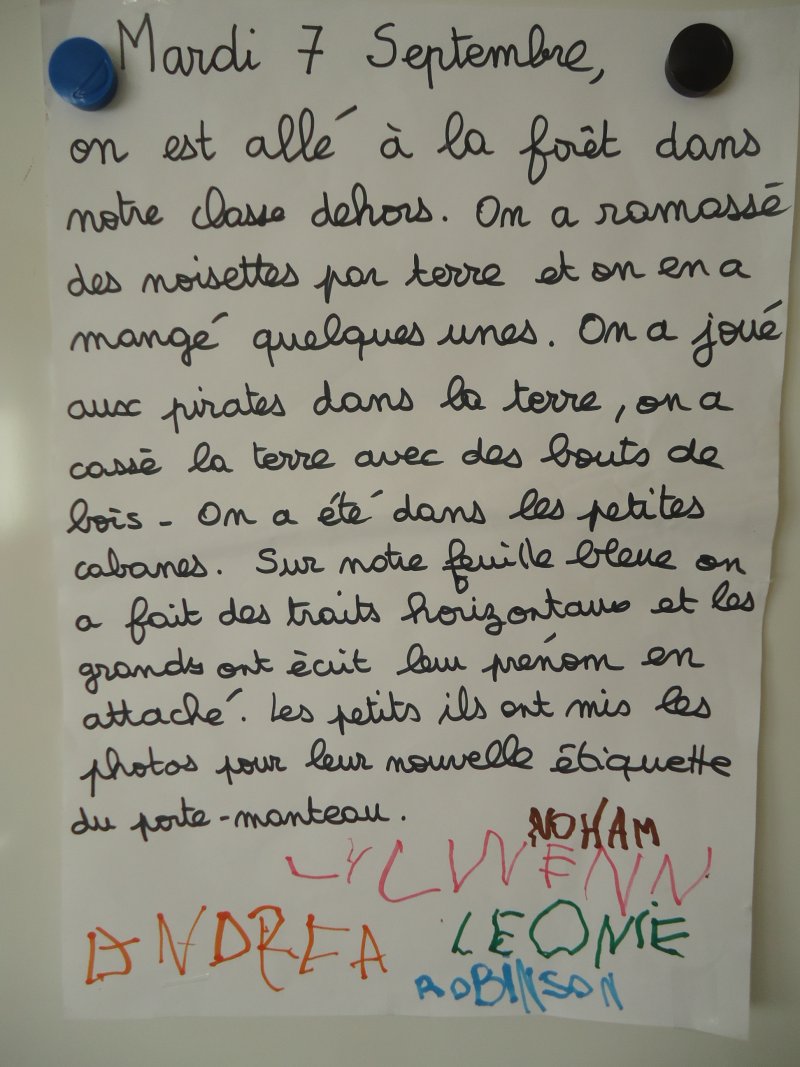 Mardi 7 Septembre,
on est allé à la forêt dans
notre classe dehors. On a ramassé
des noisettes par terre et on en a
mangé quelques unes. On a joué
aux pirates dans la terre, on a
cassé la terre avec des bouts de
bois - On a été dans les petites
cabanes. Sur notre feuille bleue on
a fait des traits horizontaux et les
grands ont écrit leur prénom en
attaché. Les petits ils ont mis les
photos pour leur nouvelle étiquette
du porte-manteau.
NOHAM
LYLWENN
ANDREA LEONIE
ROBINSON